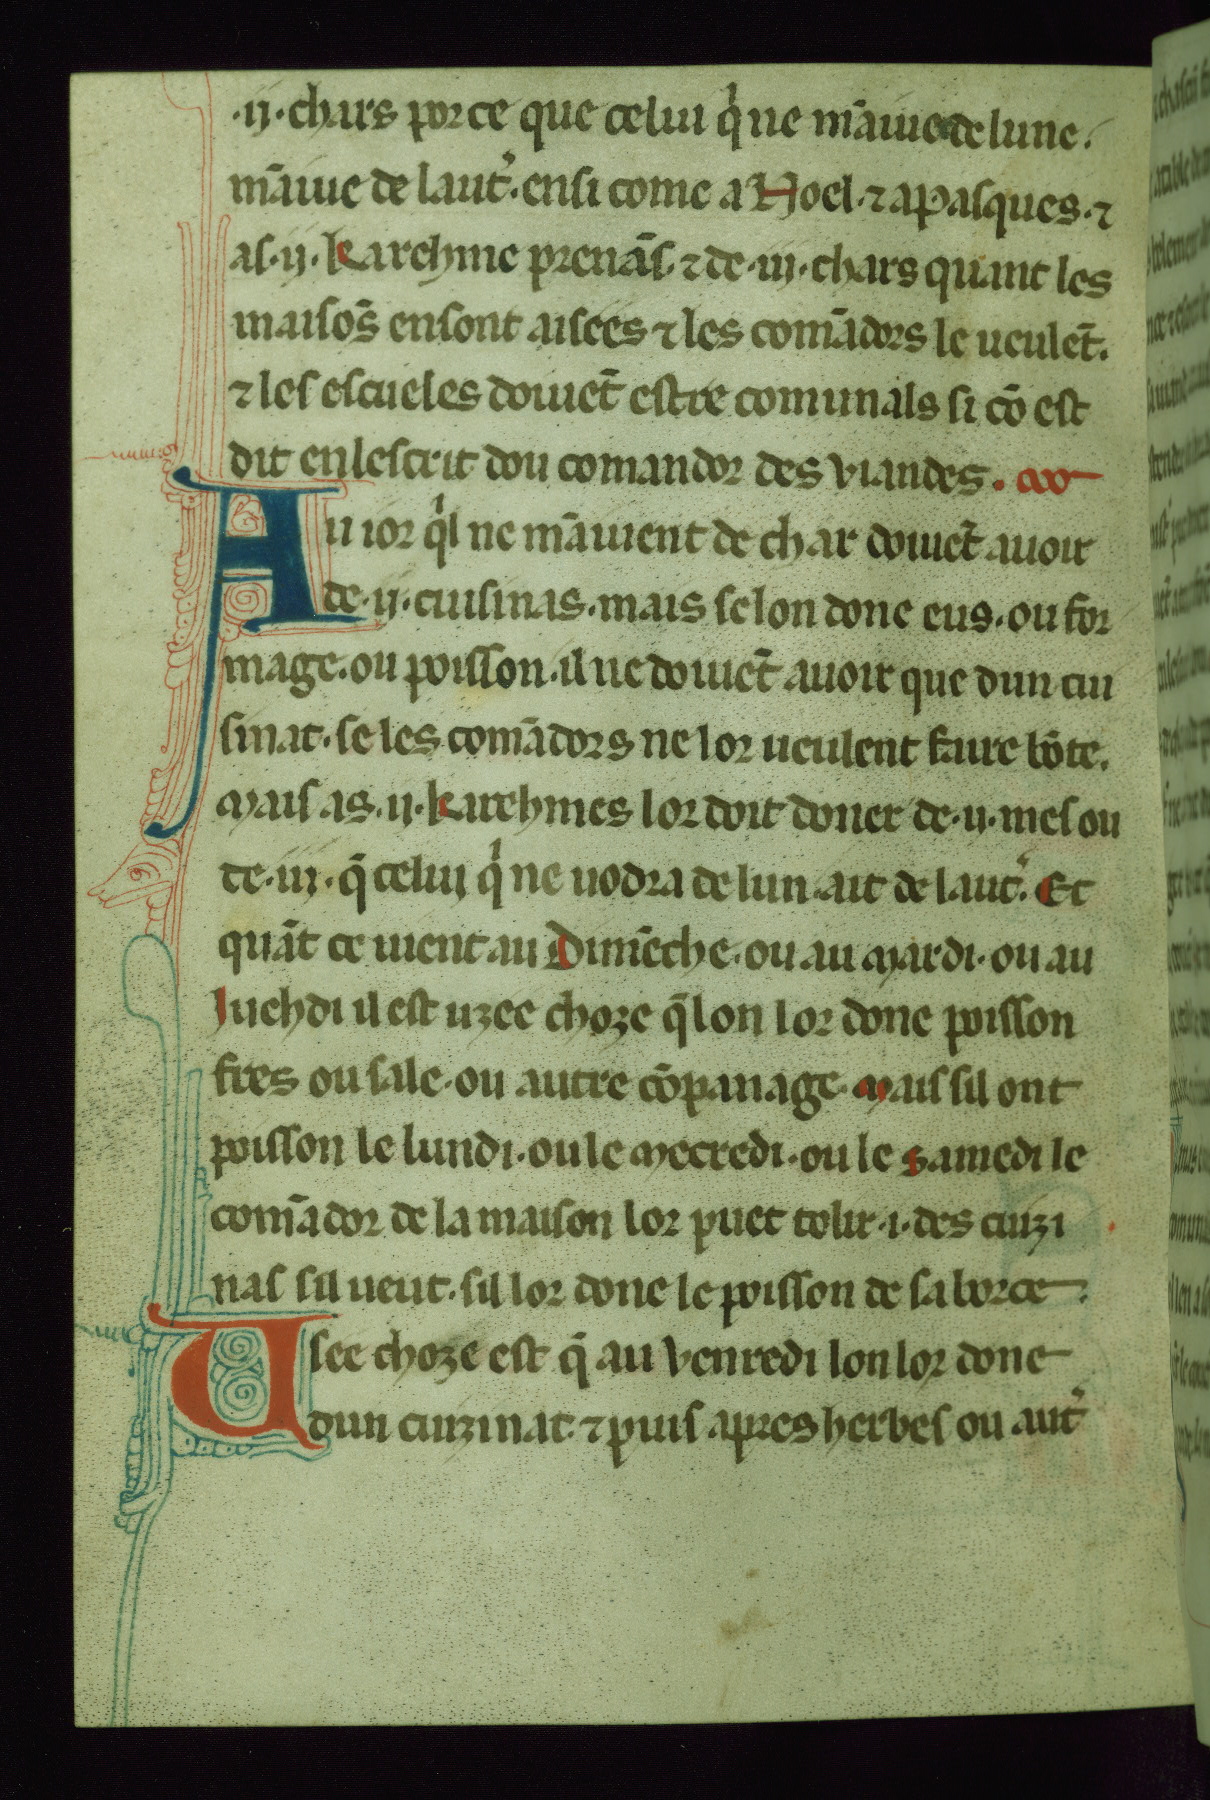 .ij. chars por ce que celui q̉ ne mãiue de lune.
mãiue de laut̉. ensi come a Noel. ⁊ a Pasques. ⁊
as .ij. karehme prenãs. ⁊ de .iij. chars quant les
maisõs en sont aisees ⁊ les comãdors le ueulẽt.
⁊ les escueles doiuẽt estre comunals si cõ est
dit en lescrit dou comandor des viandes.
Au ior q̉l ne mãiuent de char doiuẽt auoir
de .ij. cuisinas. mais se lon done eus. ou for
mage. ou poisson. il ne doiuẽt auoir que dun cui
sinat. se les comãdors ne lor ueulent faire bõte.
Mais as .ij. karehmes lor doit doner de .ii. mes ou
de .iij. q̃ celui q̉ ne uodra de lun ait de laut̉. Et
quãt ce uient au Dimẽche. ou au Mardi. ou au
Juehdi il est uzee choze q̃ lon lor done poisson
fres ou sale. ou autre cõpanage. Mais sil ont
poisson le lundi. ou le Mecredi. ou le Samedi le
comãdor de la maison lor puet tolir .i. des cuizi
nas sil ueut. sil lor done le poisson de sa borce.
Usee choze est q̃ au Venredi lon lor done
dun cuizinat. ⁊ puis apres herbes ou aut̉